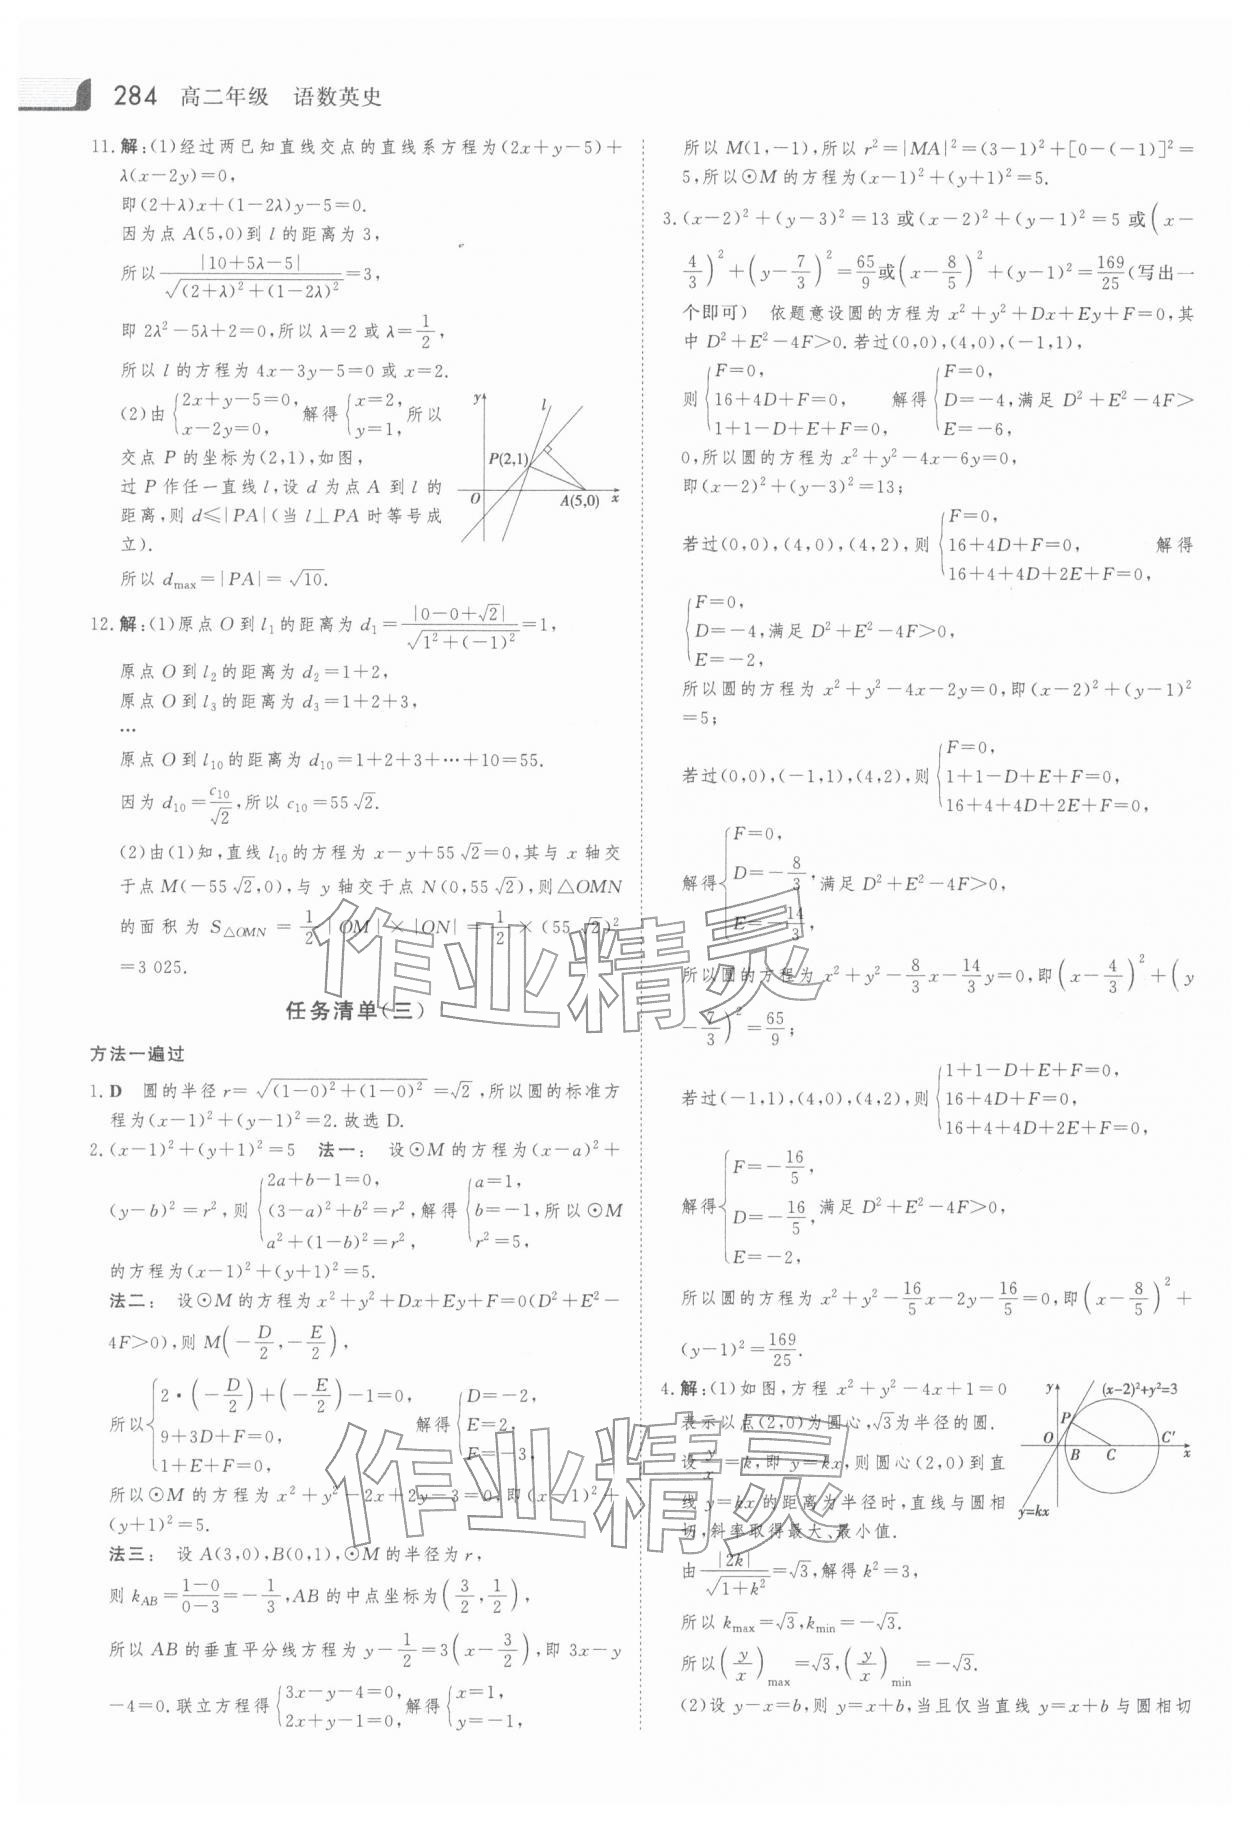 284 高二年级 语数英史
11. 解:(1)经过两已知直线交点的直线系方程为(2x+y-5)+
λ(x-2y)=0,
即(2+λ)x+(1-2λ)y-5=0.
因为点 A(5,0)到 l 的距离为 3,
所以 |10+5λ-5|/√((2+λ)²+(1-2λ)²)=3,
即 2λ²-5λ+2=0,所以 λ=2 或 λ=1/2,
所以 l 的方程为 4x-3y-5=0 或 x=2.
(2)由{2x+y-5=0, x-2y=0, 解得{x=2, y=1, 所以
交点 P 的坐标为(2,1),如图,
过 P 作任一直线 l,设 d 为点 A 到 l 的
距离,则 d≤|PA|(当 l⊥PA 时等号成
立).
所以 d_max=|PA|=√10.
y
l
P(2,1)
O
A(5,0)
x
12. 解:(1)原点 O 到 l₁ 的距离为 d₁=|0-0+√2|/√(1²+(-1)²)=1,
原点 O 到 l₂ 的距离为 d₂=1+2,
原点 O 到 l₃ 的距离为 d₃=1+2+3,
…
原点 O 到 l₁₀ 的距离为 d₁₀=1+2+3+…+10=55.
因为 d₁₀=c₁₀/√2,所以 c₁₀=55√2.
(2)由(1)知,直线 l₁₀ 的方程为 x-y+55√2=0,其与 x 轴交
于点 M(-55√2,0),与 y 轴交于点 N(0,55√2),则△OMN
的面积为 S△OMN=1/2×|OM|×|ON|=1/2×(55√2)²
=3 025.
任务清单(三)
方法一遍过
1. D 圆的半径 r=√((1-0)²+(1-0)²)=√2,所以圆的标准方
程为(x-1)²+(y-1)²=2.故选 D.
2. (x-1)²+(y+1)²=5 法一: 设⊙M 的方程为(x-a)²+
(y-b)²=r²,则{2a+b-1=0, (3-a)²+b²=r², a²+(1-b)²=r², 解得{a=1, b=-1, r²=5, 所以⊙M
的方程为(x-1)²+(y+1)²=5.
法二: 设⊙M 的方程为 x²+y²+Dx+Ey+F=0(D²+E²-
4F>0),则 M(-D/2,-E/2),
所以{2·(-D/2)+(-E/2)-1=0, 9+3D+F=0, 1+E+F=0, 解得{D=-2, E=2, F=-3,
所以⊙M 的方程为 x²+y²-2x+2y-3=0,即(x-1)²+
(y+1)²=5.
法三: 设 A(3,0),B(0,1),⊙M 的半径为 r,
则 k_AB=(1-0)/(0-3)=-1/3,AB 的中点坐标为(3/2,1/2),
所以 AB 的垂直平分线方程为 y-1/2=3(x-3/2),即 3x-y
-4=0.联立方程得{3x-y-4=0, 2x+y-1=0, 解得{x=1, y=-1,
所以 M(1,-1),所以 r²=|MA|²=(3-1)²+[0-(-1)]²=
5,所以⊙M 的方程为(x-1)²+(y+1)²=5.
3. (x-2)²+(y-3)²=13 或(x-2)²+(y-1)²=5 或(x-
4/3)²+(y-7/3)²=65/9或(x-8/5)²+(y-1)²=169/25(写出一
个即可) 依题意设圆的方程为 x²+y²+Dx+Ey+F=0,其
中 D²+E²-4F>0.若过(0,0),(4,0),(-1,1),
则{F=0, 16+4D+F=0, 1+1-D+E+F=0, 解得{F=0, D=-4, E=-6, 满足 D²+E²-4F>
0,所以圆的方程为 x²+y²-4x-6y=0,
即(x-2)²+(y-3)²=13;
若过(0,0),(4,0),(4,2),则{F=0, 16+4D+F=0, 16+4+4D+2E+F=0, 解得
{F=0, D=-4, E=-2, 满足 D²+E²-4F>0,
所以圆的方程为 x²+y²-4x-2y=0,即(x-2)²+(y-1)²
=5;
若过(0,0),(-1,1),(4,2),则{F=0, 1+1-D+E+F=0, 16+4+4D+2E+F=0,
解得{F=0, D=-8/3, E=-14/3, 满足 D²+E²-4F>0,
所以圆的方程为 x²+y²-8/3x-14/3y=0,即(x-4/3)²+(y
-7/3)²=65/9;
若过(-1,1),(4,0),(4,2),则{1+1-D+E+F=0, 16+4D+F=0, 16+4+4D+2E+F=0,
解得{F=-16/5, D=-16/5, E=-2, 满足 D²+E²-4F>0,
所以圆的方程为 x²+y²-16/5x-2y-16/5=0,即(x-8/5)²+
(y-1)²=169/25.
4. 解:(1)如图,方程 x²+y²-4x+1=0
表示以点(2,0)为圆心,√3为半径的圆.
设y/x=k,即 y=kx,则圆心(2,0)到直
线 y=kx 的距离为半径时,直线与圆相
切,斜率取得最大、最小值.
y
(x-2)²+y²=3
P
O
B
C
C′
x
y=kx
由|2k|/√(1+k²)=√3,解得 k²=3,
所以 k_max=√3,k_min=-√3.
所以(y/x)_max=√3,(y/x)_min=-√3.
(2)设 y-x=b,则 y=x+b,当且仅当直线 y=x+b 与圆相切
作业精灵
作业精灵